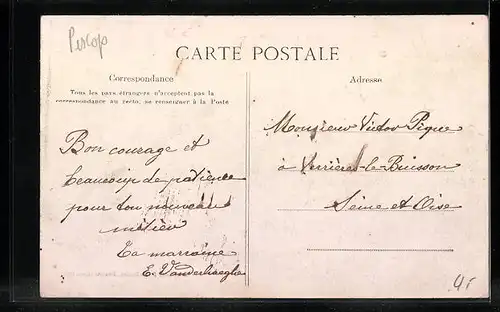 Piscop
CARTE POSTALE
Correspondance
Tous les pays étrangers n'acceptent pas la
correspondance au recto, se renseigner à la Poste
Bon courage et
beaucoup de patience
pour ton nouveau
métier
Ta marraine
E. Vanderhaeghe
Adresse
Monsieur Victor Pique
à Verrières-le-Buisson
Seine et Oise